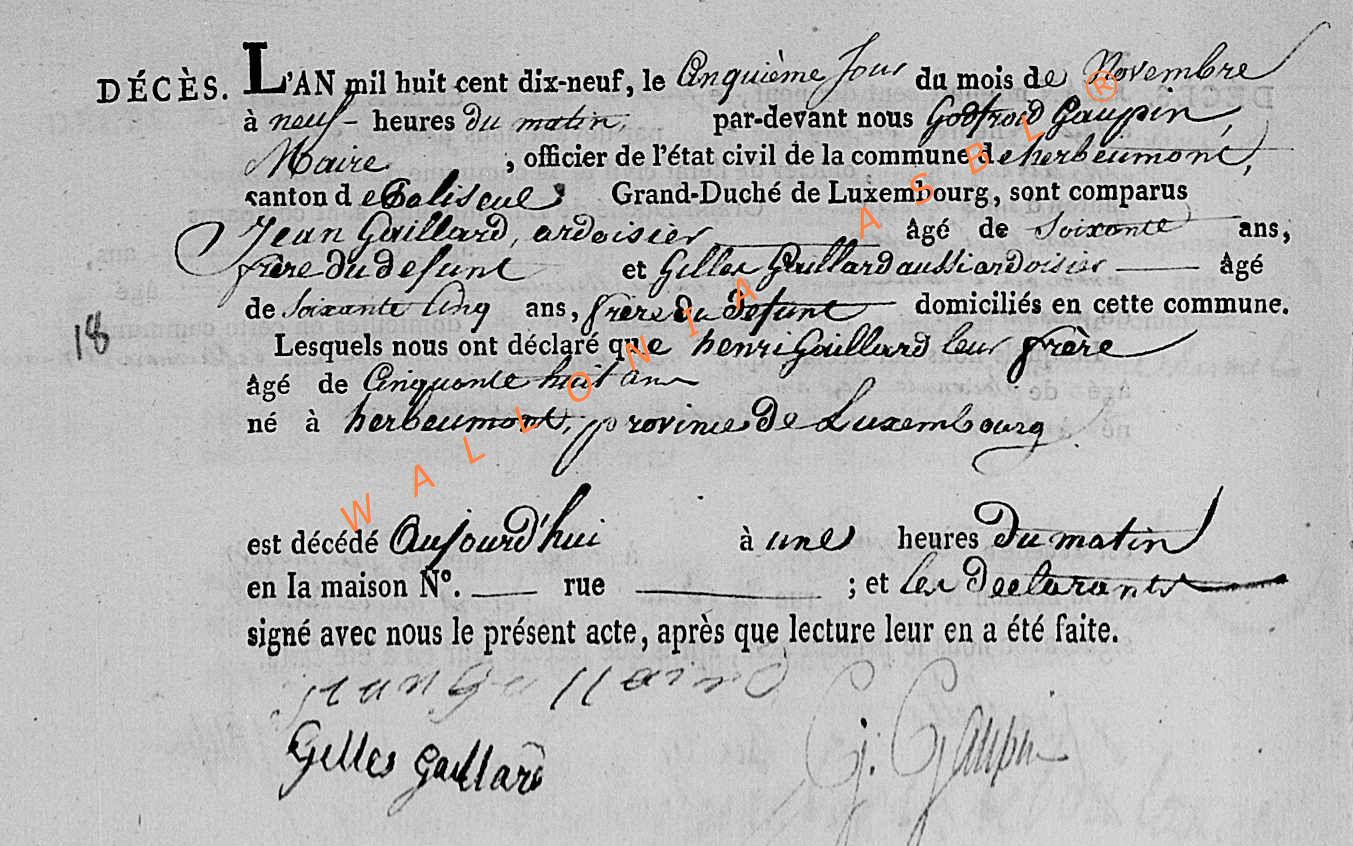 DÉCÈS. L'AN mil huit cent dix-neuf, le Cinquième Jour du mois de Novembre
à neuf heures du matin, par-devant nous Godfroid Gaupin,
Maire, officier de l'état civil de la commune de herbeumont,
canton de Paliseul, Grand-Duché de Luxembourg, sont comparus
Jean Gaillard, ardoisier âgé de Soixante ans,
frère du defunt et Gilles Gaillard aussi ardoisier âgé
de Soixante Cinq ans, frère du defunt domiciliés en cette commune.
18
Lesquels nous ont déclaré que henri Gaillard leur frère
âgé de Cinquante huit ans
né à herbeumont, province de Luxembourg
est décédé Aujourd'hui à une heures Du matin
en la maison N°. rue ; et les Declarants
signé avec nous le présent acte, après que lecture leur en a été faite.
Jean Gaillaird
Gilles Gaillard
G. Gaupin
WALLONIA ASBL ®